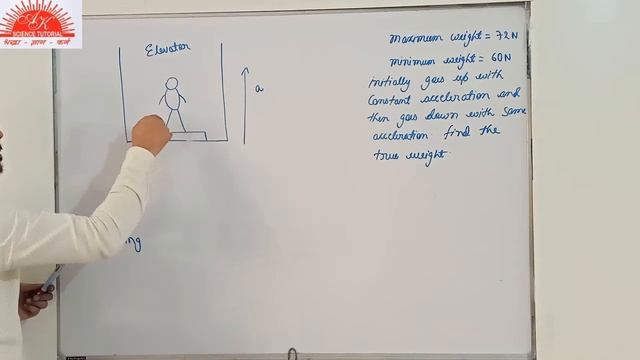 AK
SCIENCE TUTORIAL
श्रद्धा - ज्ञान - कर्म
Elevator
a
ng
Maximum weight = 72N
Minimum weight = 60N
Initially goes up with
constant acceleration and
then goes down with same
acceleration find the
true weight.